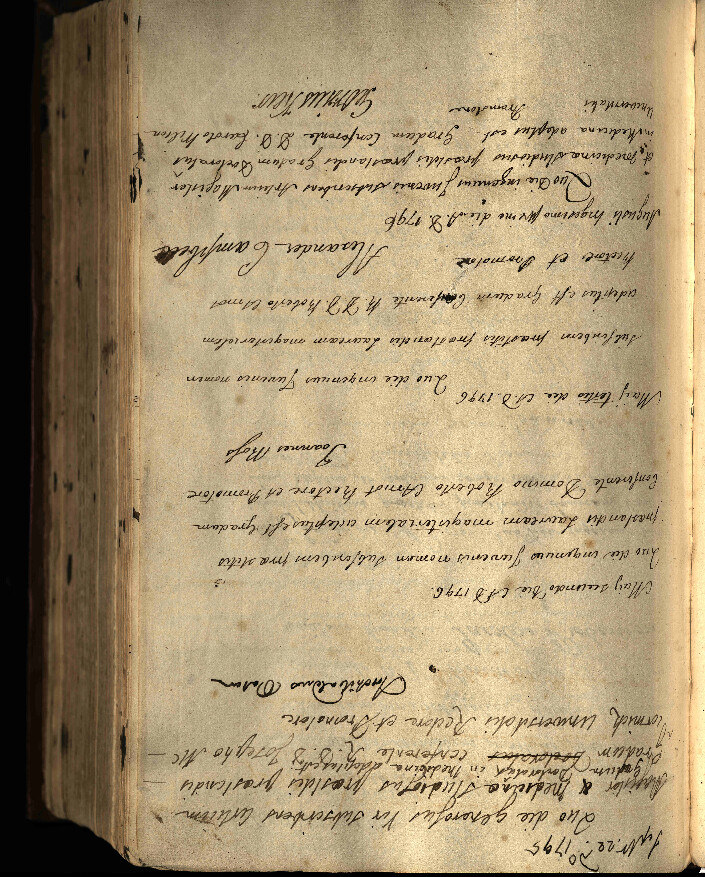 Septr. 22do 1795
Quo die generosus Vir subscribens Artium
Magister & Medicinæ studiosus præstitis præstandis
Gradum Doctoratus in Medicina adeptus est
Gradum Doctoratus conferente R. D. D. Josepho Mc-
Cormick, Universitatis Rectore et Promotore
Archibaldus
Maij secundo Die A D 1796.
Quo die ingenuus Juvenis nomen subscribens præstitis
præstandis Lauream magisterialem adeptus est Gradum
Conferente Domino Roberto Arnot Rectore et Promotore
Joannes
Maij tertio die A.D. 1796
Quo die ingenuus Juvenis nomen
subscribens præstitis præstandis Lauream magisterialem
adeptus est Gradum Conferente R D D Roberto Arnot
Rectore et Promotore
Alexander Campbell
Augusti trigesimo primo die A.D. 1796
Quo Die ingenuus Juvenis subscribens Artium Magister
et medicinæ studiosus præstitis præstandis Gradum Doctoratus
in Medicina adeptus est Gradum Conferente D.D. Carolo Wilson
Universitatis Promotore
Georgius Kerr